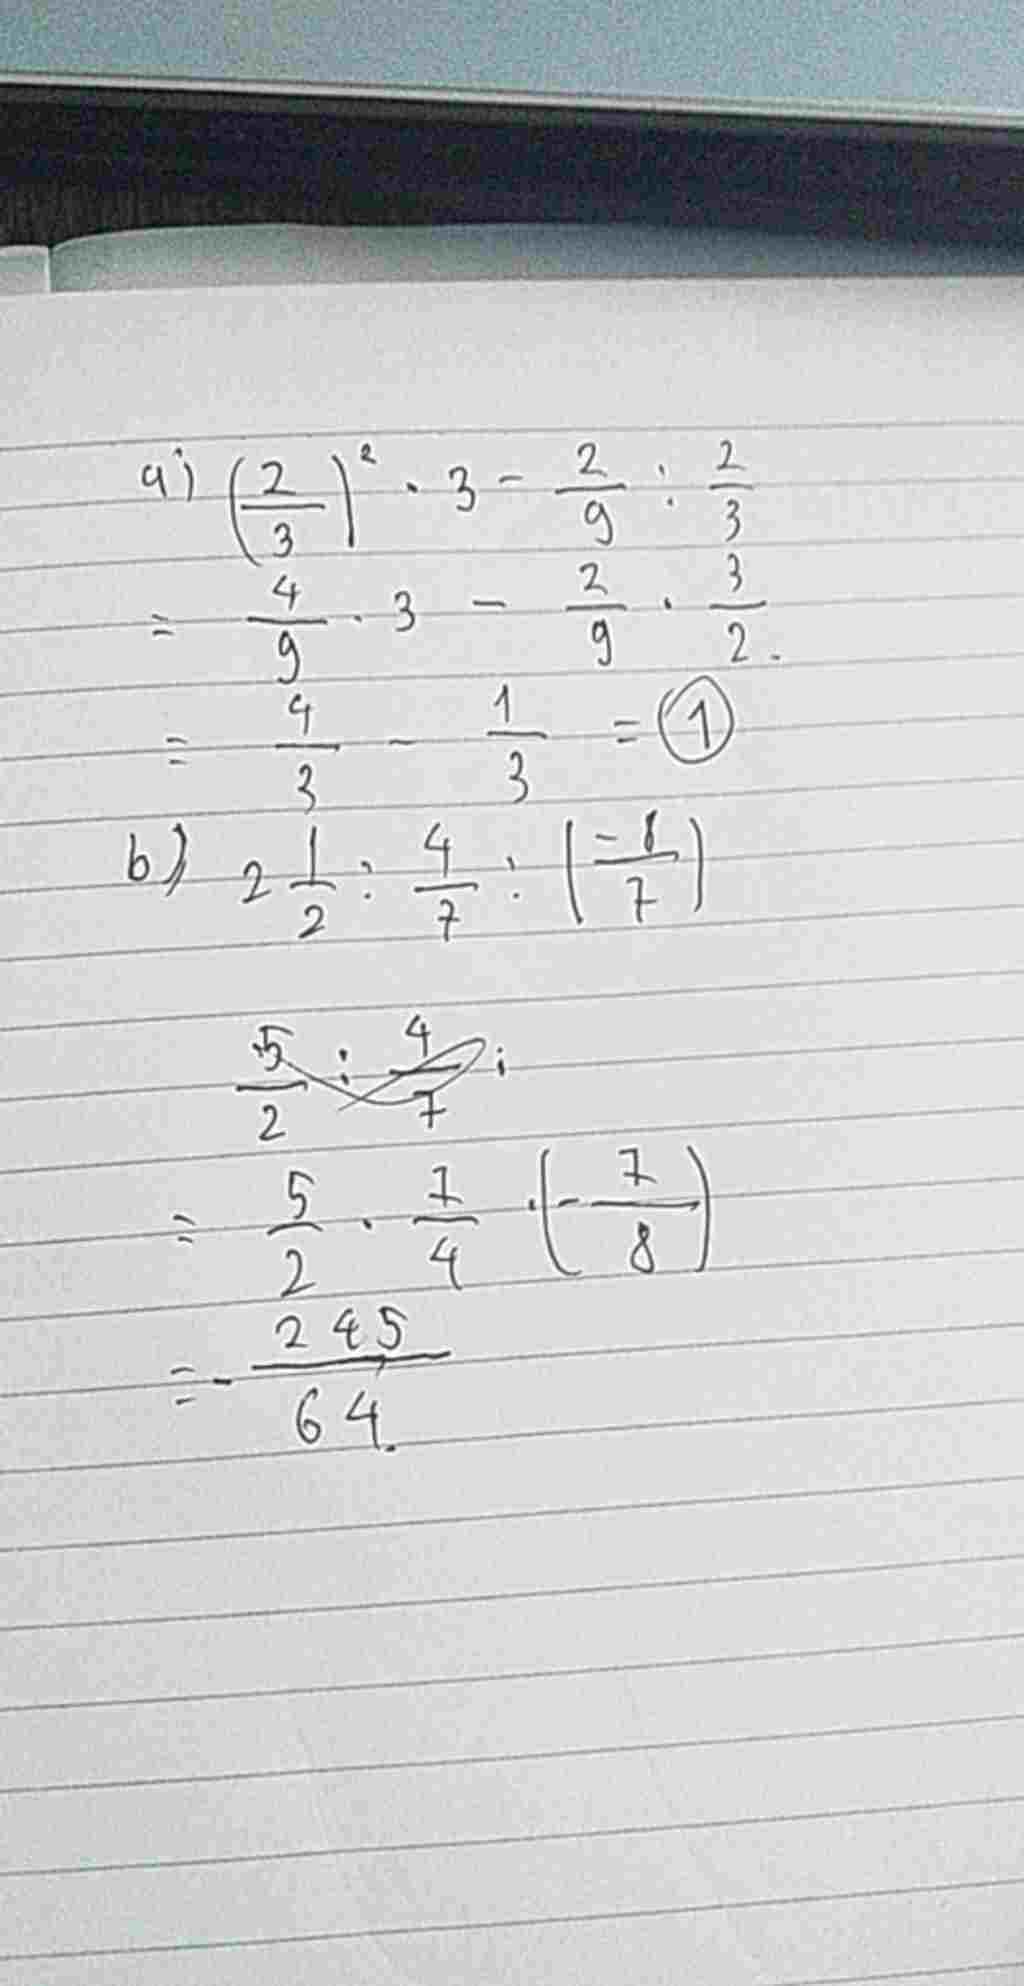 a) (2/3)² · 3 - 2/9 : 2/3
= 4/9 · 3 - 2/9 · 3/2.
= 4/3 - 1/3 = 1
b) 2 1/2 : 4/7 : (-8/7)
5/2 : 4/7 :
= 5/2 · 7/4 · (-7/8)
= - 245/64.